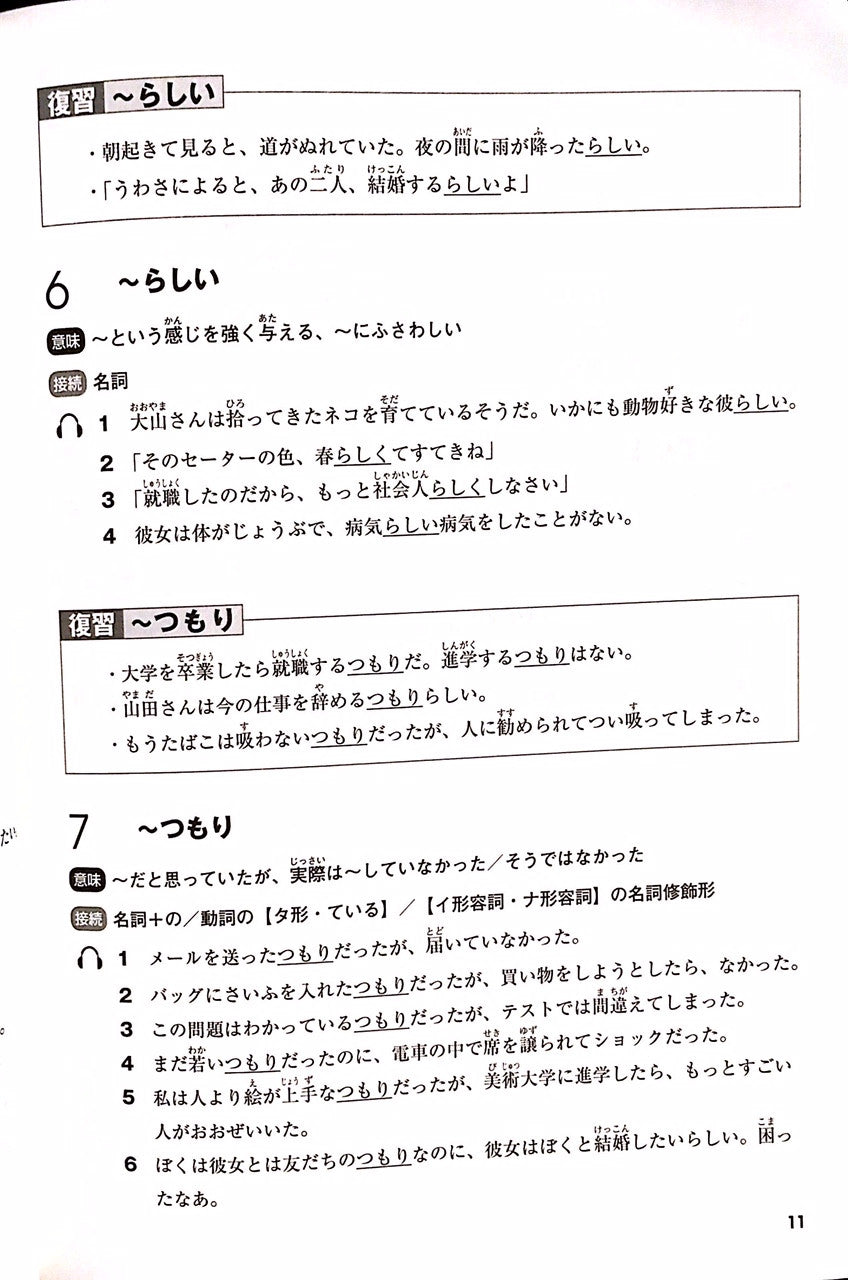 復習 ～らしい
・朝起きて見ると、道がぬれていた。夜の間に雨が降ったらしい。
・「うわさによると、あの二人、結婚するらしいよ」
6 ～らしい
意味 ～という感じを強く与える、～にふさわしい
接続 名詞
1 大山さんは拾ってきたネコを育てているそうだ。いかにも動物好きな彼らしい。
2 「そのセーターの色、春らしくてすてきね」
3 「就職したのだから、もっと社会人らしくしなさい」
4 彼女は体がじょうぶで、病気らしい病気をしたことがない。
復習 ～つもり
・大学を卒業したら就職するつもりだ。進学するつもりはない。
・山田さんは今の仕事を辞めるつもりらしい。
・もうたばこは吸わないつもりだったが、人に勧められてつい吸ってしまった。
7 ～つもり
たい
意味 ～だと思っていたが、実際は～していなかった／そうではなかった
接続 名詞＋の／動詞の【タ形・ている】／【イ形容詞・ナ形容詞】の名詞修飾形
1 メールを送ったつもりだったが、届いていなかった。
2 バッグにさいふを入れたつもりだったが、買い物をしようとしたら、なかった。
3 この問題はわかっているつもりだったが、テストでは間違えてしまった。
4 まだ若いつもりだったのに、電車の中で席を譲られてショックだった。
5 私は人より絵が上手なつもりだったが、美術大学に進学したら、もっとすごい
人がおおぜいいた。
6 ぼくは彼女とは友だちのつもりなのに、彼女はぼくと結婚したいらしい。困っ
たなあ。
11